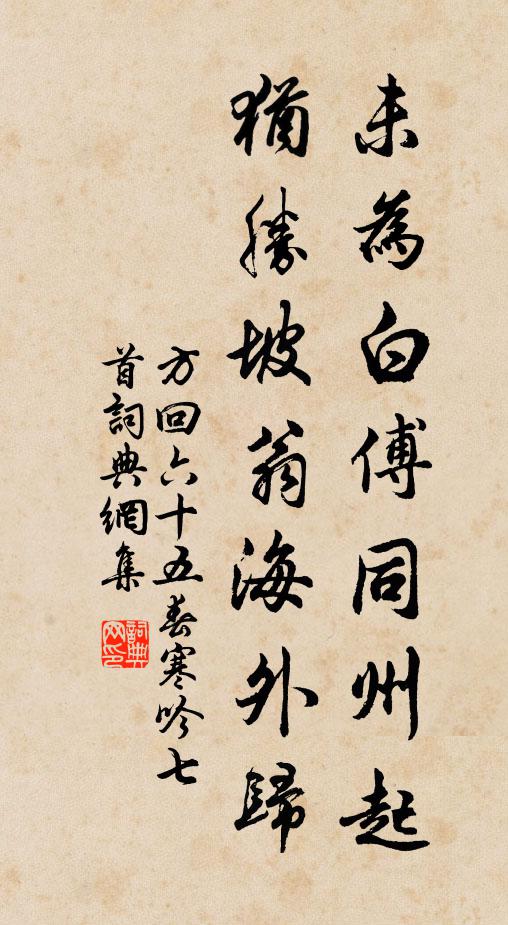 未為白傅同州起
猶勝坡翁海外歸
方回六十五春寒吟七
首詞典網集
詞典
网印